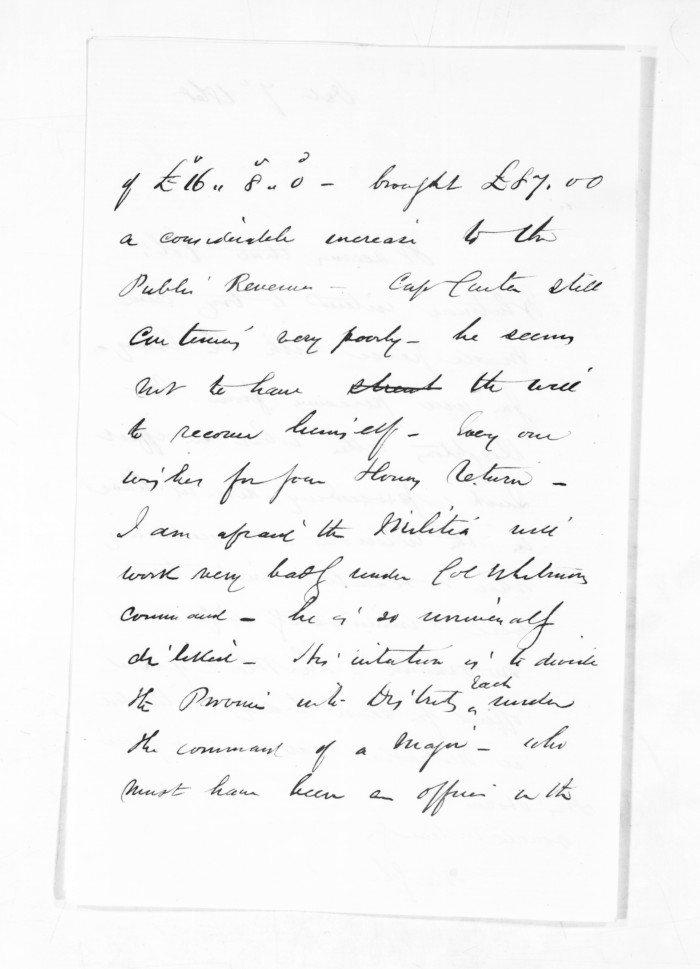 of £16 ,, 8 ,, 0 - brought £87.00
a considerable increase to the
Public Revenue - Capt Carter still
continues very poorly - he seems
not to have the will
to recover himself - Every one
wishes for your Honors return -
I am afraid the Militia will
work very badly under Col Whitmores
command - he is so universally
disliked - His intention is to divide
the Province into Districts each under
the command of a Major - who
must have been an officer in the